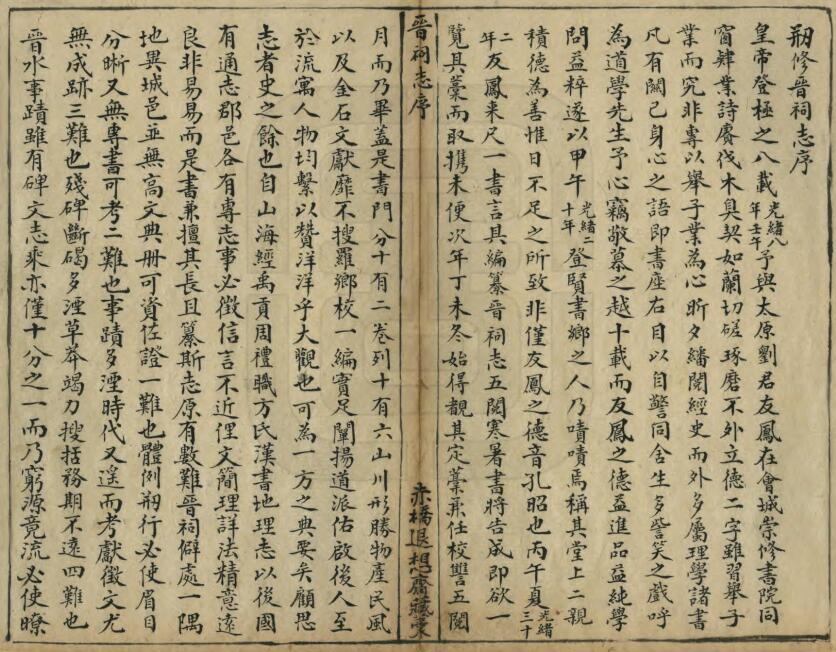 剏修晉祠志序
皇帝登極之八載光緒八年壬午予與太原劉君友鳳在會城崇修書院同
窗肄業詩賡伐木臭契如蘭切磋琢磨不外立德二字雖習舉子
業而究非專以舉子業為心昕夕繙閱經史而外多屬理學諸書
凡有關己身心之語即書座右目以自警同舍生多訾笑之戲呼
為道學先生予心竊敬慕之越十載而友鳳之德益進品益純學
問益粹遂以甲午光緒二十年登賢書鄉之人乃嘖嘖焉稱其堂上二親
積德為善惟日不足之所致非僅友鳳之德音孔昭也丙午夏光緒三十
二年友鳳來尺一書言其編纂晉祠志五閱寒暑書將告成即欲一
覽其藁而取攜未便次年丁未冬始得觀其定藁兼任校讐五閱
晉祠志序
赤橋退想齋藏藁
月而乃畢蓋是書門分十有二卷列十有六山川形勝物產民風
以及金石文獻靡不搜羅鄉校一編實足闡揚道派佑啟後人至
於流寓人物均繫以贊洋洋乎大觀也可為一方之典要矣顧思
志者史之餘也自山海經禹貢周禮職方氏漢書地理志以後國
有通志郡邑各有專志事必徵信言不近俚文簡理詳法精意遠
良非易易而是書兼擅其長且纂斯志原有數難晉祠僻處一隅
地異城邑並無高文典冊可資佐證一難也體例剏行必使眉目
分晰又無專書可考二難也事蹟多湮時代又遙而考獻徵文尤
無成跡三難也殘碑斷碣多湮草莽竭力搜括務期不遠四難也
晉水事蹟雖有碑文志乘亦僅十分之一而乃窮源竟流必使瞭